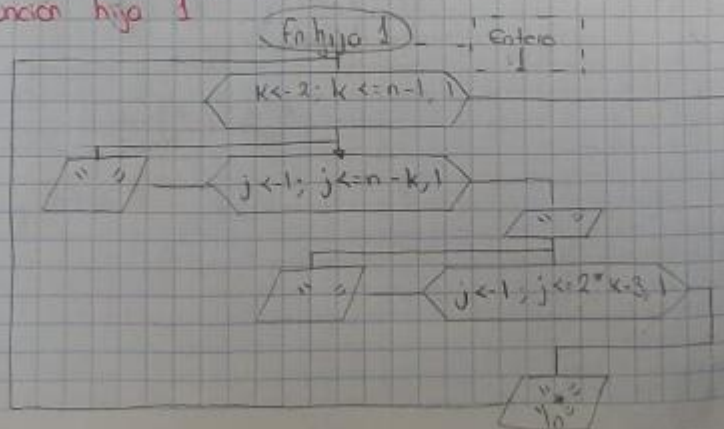 función hija 1
Fn hija 1
Entero
1
k<-2; k<=n-1, 1
" "
j<-1; j<=n-k, 1
" "
" "
j<-1; j<=2*k-3, 1
"*
\n"